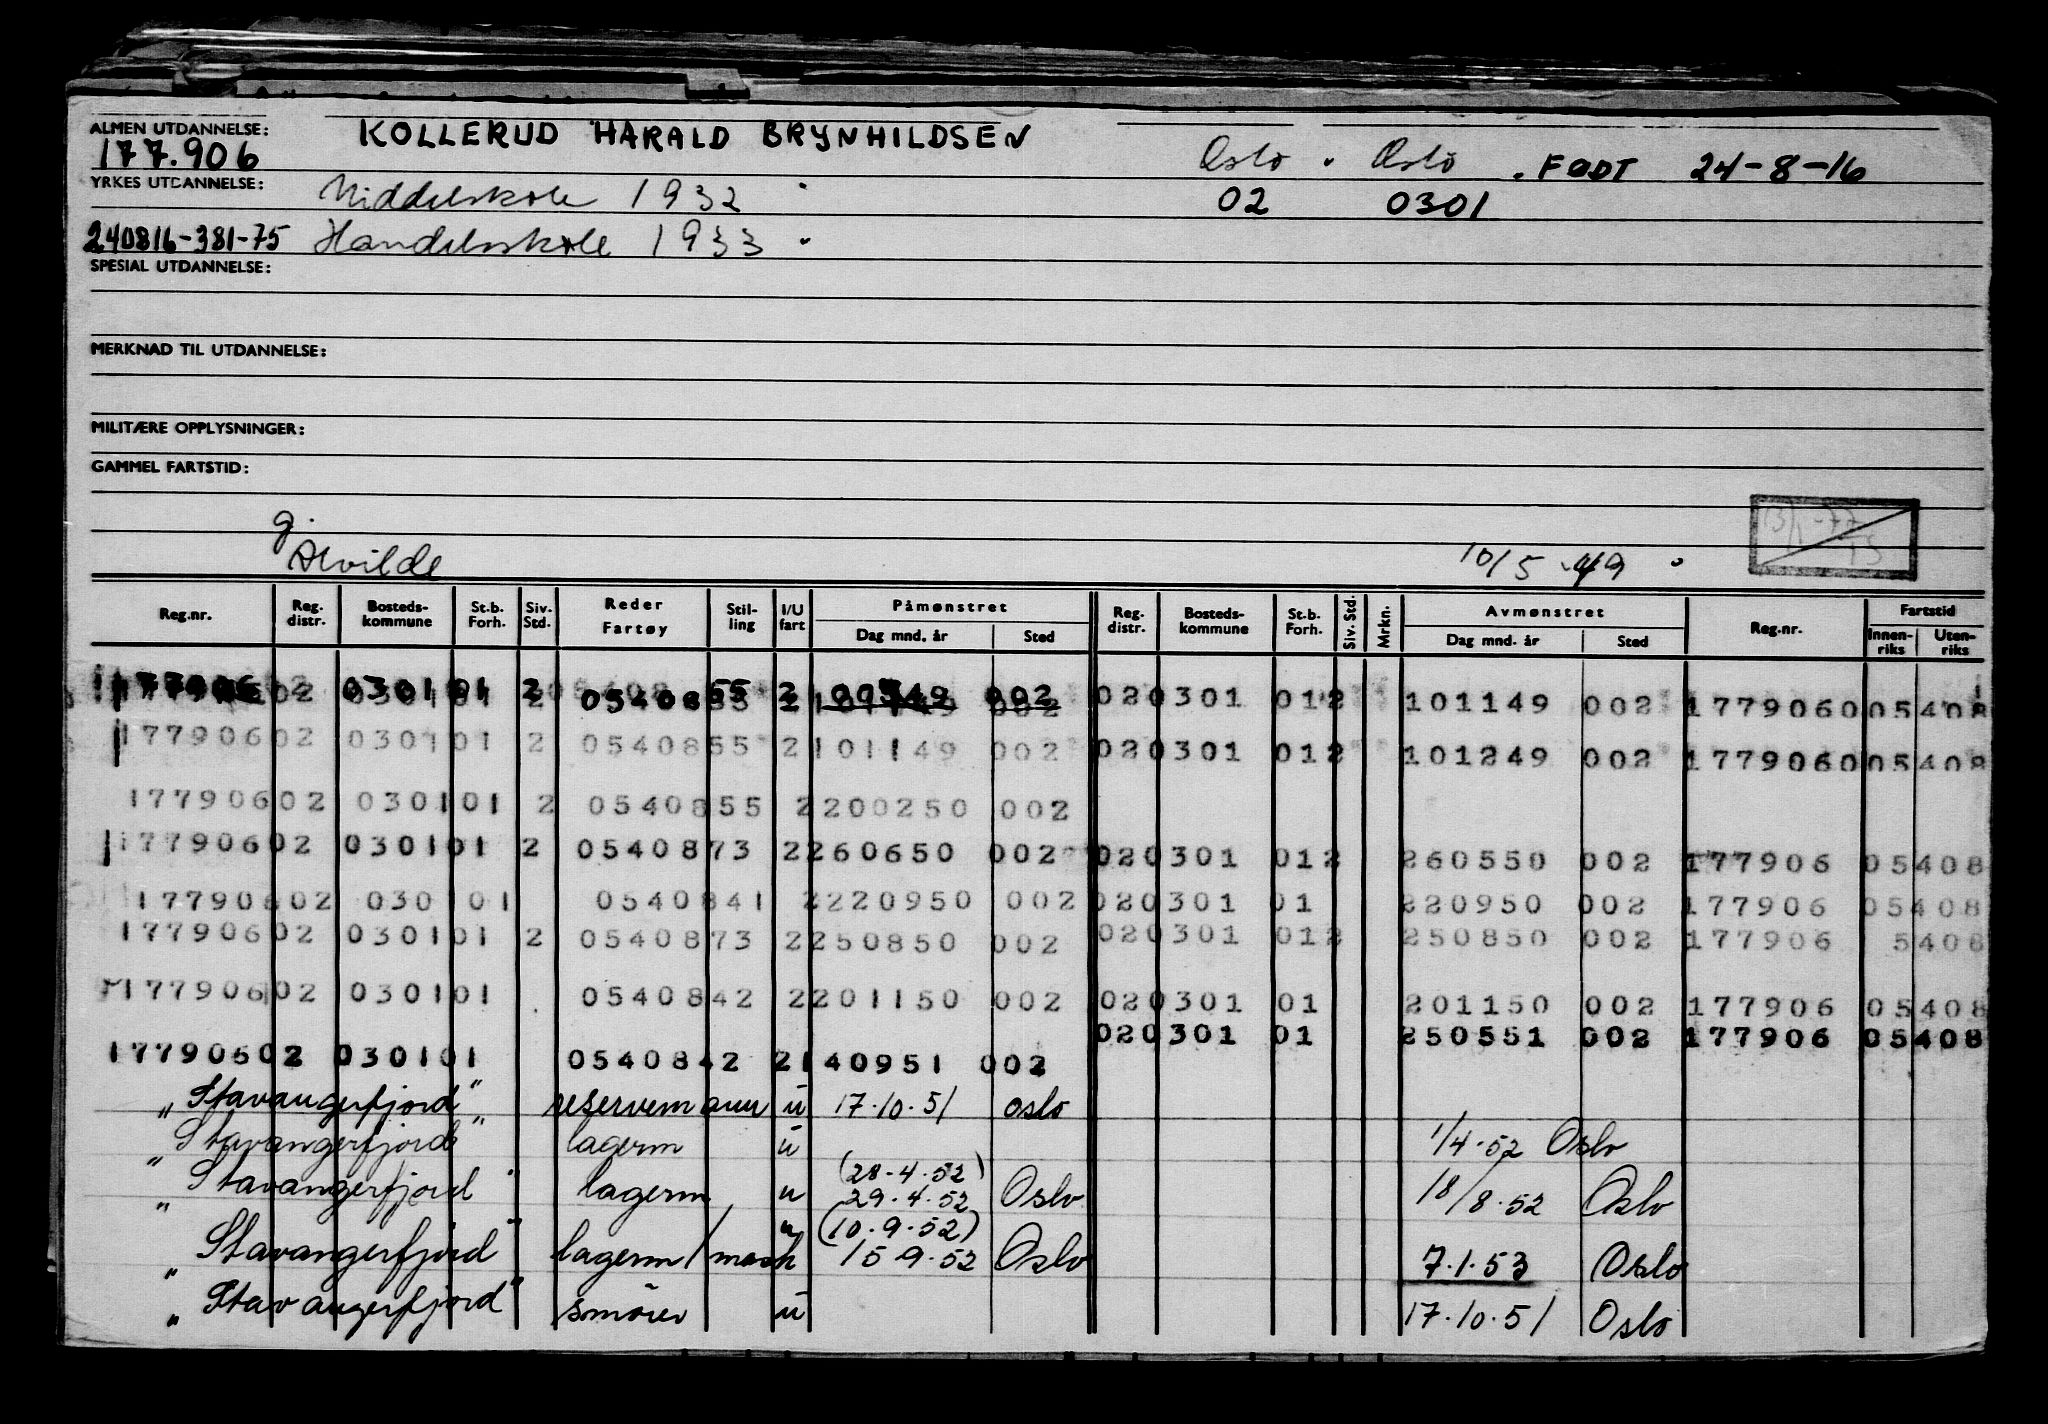 ALMEN UTDANNELSE: KOLLERUD HARALD BRYNHILDSEN
177.906 Oslo . Oslo . FØDT 24-8-16
YRKES UTDANNELSE: Middelskole 1932 02 0301
240816-381-75 Handelsskole 1933
SPESIAL UTDANNELSE:
MERKNAD TIL UTDANNELSE:
MILITÆRE OPPLYSNINGER:
GAMMEL FARTSTID:
g.
Alvilde 10/5 49
Reg.nr. Reg. distr. Bosteds- kommune St.b. Forh. Siv. Std. Reder Fartøy Stil- ling I/U fart Påmønstret Reg. distr. Bosteds- kommune St.b. Forh. Siv. Std. Mrkn. Avmønstret Reg.nr. Fartstid
Dag mnd. år Sted Dag mnd. år Sted Innen- riks Uten- riks
177906 02 0301 01 2 05408 55 2 002 02 0301 01 2 101149 002 177906 0 05408
177906 02 0301 01 2 05408 55 2 101149 002 02 0301 01 2 101249 002 177906 0 05408
177906 02 0301 01 2 05408 55 2 200250 002
177906 02 0301 01 2 05408 73 2 260650 002 02 0301 01 2 260550 002 177906 05408
177906 02 030 01 05408 41 2 220950 002 02 0301 01 220950 002 177906 05408
177906 02 0301 01 2 05408 73 2 250850 002 02 0301 01 2 250850 002 177906 5408
177906 02 0301 01 05408 42 2 201150 002 02 0301 01 201150 002 177906 05408
02 0301 01 250551 002 177906 05408
177906 02 0301 01 05408 42 2 140951 002
"Stavangerfjord" reservemann u 17.10.51 oslo
"Stavangerfjord" lagerm u 1/4.52 Oslo
(28.4.52)
"Stavangerfjord" lagerm u 29.4.52 Oslo 18/8.52 Oslo
(10.9.52)
"Stavangerfjord" lagerm/mask u 15 9.52 Oslo 7.1.53 Oslo
"Stavangerfjord" smörer u 17.10.51 Oslo